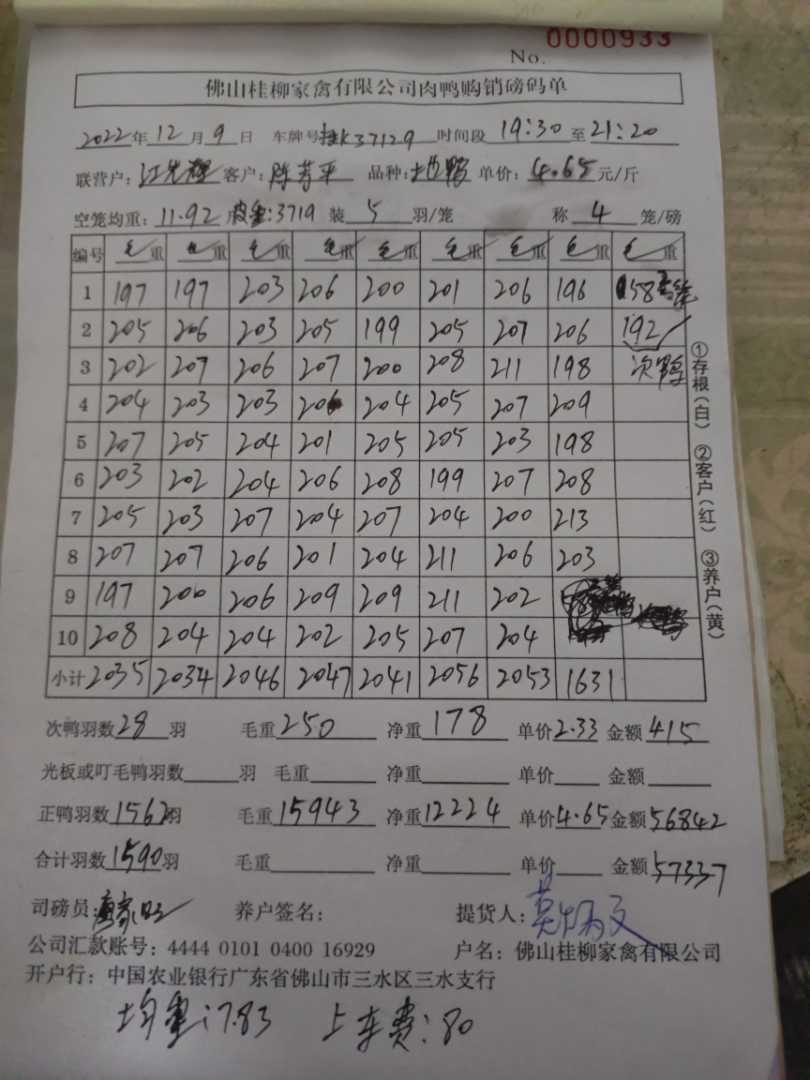 No. 0000933
佛山桂柳家禽有限公司肉鸭购销磅码单
2022年12月9日 车牌号:桂K37129 时间段 19:30 至 21:20
联营户: 客户:陈芳平 品种: 单价:4.65元/斤
空笼均重:11.92斤 皮重:3719 装5羽/笼 称4笼/磅
编号 毛重 毛重 毛重 毛重 毛重 毛重 毛重 毛重 毛重
1 197 197 203 206 200 201 206 196 158
2 205 206 203 205 199 205 207 206 192
3 202 207 206 207 200 208 211 198 次鸭
4 204 203 203 206 204 205 207 209
5 207 205 204 201 205 205 203 198
6 203 202 204 206 208 199 207 208
7 205 203 207 204 207 204 200 213
8 207 207 206 201 204 211 206 203
9 197 200 206 209 209 211 202
10 208 204 204 202 205 207 204
小计 2035 2034 2046 2047 2041 2056 2053 1631
①存根(白) ②客户(红) ③养户(黄)
次鸭羽数28羽 毛重250 净重178 单价2.33 金额415
光板或叮毛鸭羽数 羽 毛重 净重 单价 金额
正鸭羽数1562羽 毛重15943 净重12224 单价4.65 金额56842
合计羽数1590羽 毛重 净重 单价 金额57337
司磅员: 养户签名: 提货人:
公司汇款账号:4444 0101 0400 16929 户名:佛山桂柳家禽有限公司
开户行:中国农业银行广东省佛山市三水区三水支行
均重:7.83 上车费:80